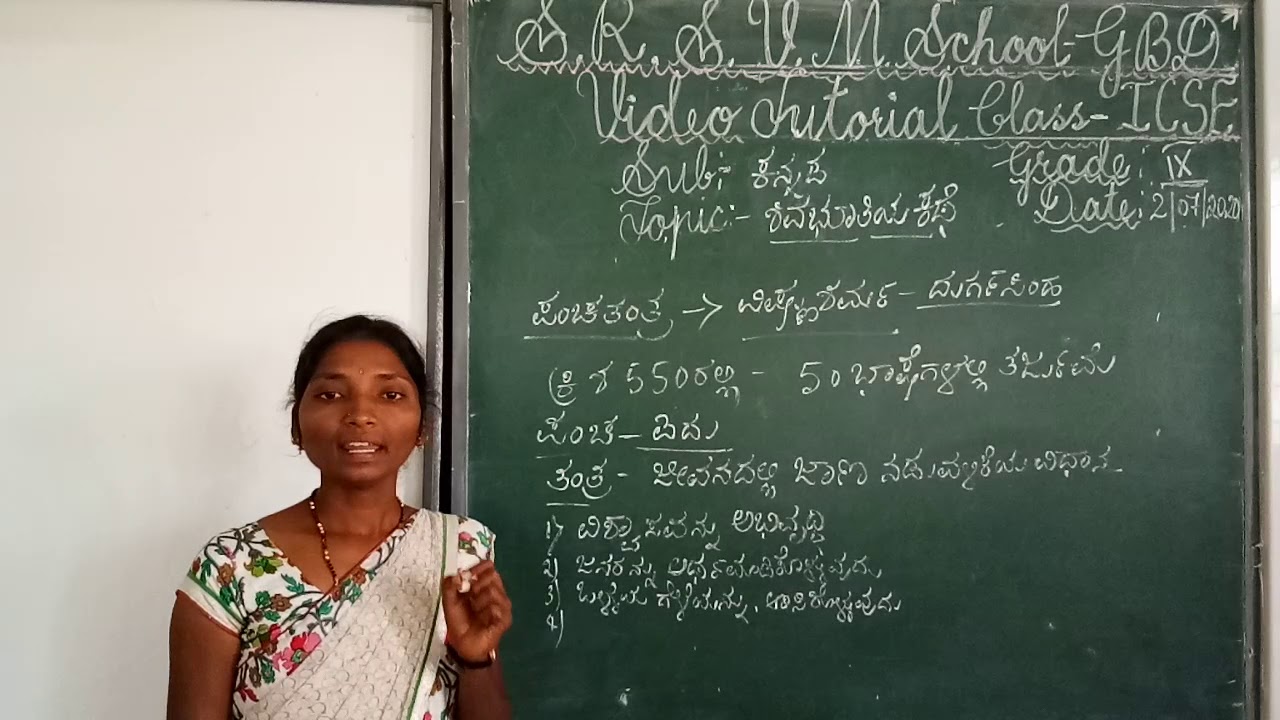 S.R.S.V.M. School-GBD
Video Tutorial Class- ICSE
Sub:- ಕನ್ನಡ Grade: IX
Topic:- ಶಿವಭೂತಿಯ ಕಥೆ Date: 2/07/2020
ಪಂಚತಂತ್ರ -> ವಿಷ್ಣುಶರ್ಮ - ದುರ್ಗಸಿಂಹ
ಕ್ರಿ ಶ 550ರಲ್ಲಿ - 50 ಭಾಷೆಗಳಲ್ಲಿ ತರ್ಜುಮೆ
ಪಂಚ - ಐದು
ತಂತ್ರ - ಜೀವನದಲ್ಲಿ ಜಾಣ ನಡುವಳಿಕೆಯ ವಿಧಾನ
1) ವಿಶ್ವಾಸವನ್ನು ಅಭಿವೃದ್ಧಿ
2) ಜನರನ್ನು ಅರ್ಥಮಾಡಿಕೊಳ್ಳುವುದು
3) ಒಳ್ಳೆಯ ಗೆಳೆಯನ್ನು
4)